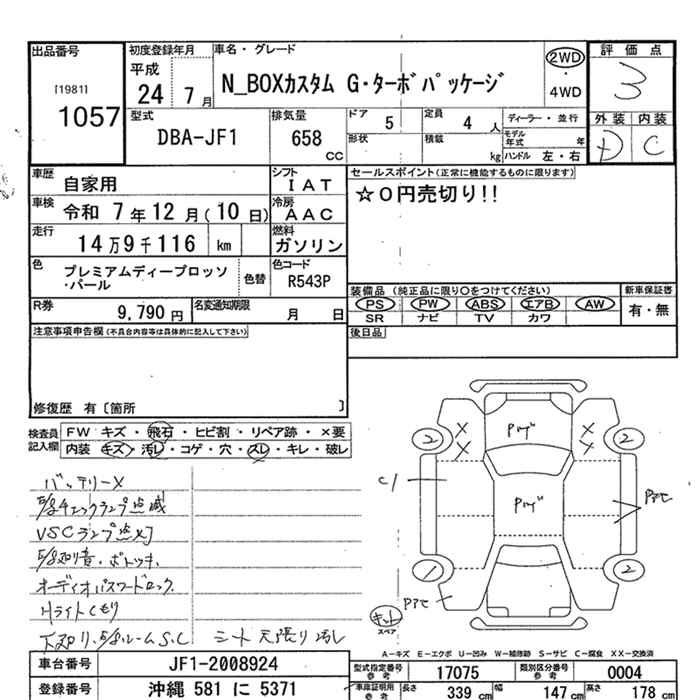 出品番号
[1981]
1057
初度登録年月
平成
24 7月
車名・グレード
N_BOXカスタム G・ターボパッケージ
2WD
・
4WD
評価点
3
型式
DBA-JF1
排気量
658
cc
ドア 5
定員 4人
形状
積載 kg
ディーラー・並行
モデル年式 年
ハンドル 左・右
外装 内装
D C
車歴 自家用
シフト IAT
車検 令和 7年12月(10日)
冷房 AAC
走行 14万9千116 km
燃料 ガソリン
色 プレミアムディープロッソ
・パール
色替
色コード R543P
R券 9,790円
名変通知期限 月 日
セールスポイント(正常に機能するものに限ります)
☆0円売切り!!
装備品 (純正品に限り○をつけてください)
新車保証書
PS PW ABS エアB AW
SR ナビ TV カワ
有・無
後日品
注意事項申告欄(不具合内容等は具体的に記入して下さい)
修復歴 有〔箇所 〕
検査員
記入欄
FW キズ・飛石・ヒビ割・リペア跡・×要
内装 キズ・汚レ・コゲ・穴・スレ・キレ・破レ
バッテリーX
チェックランプ点滅
VSCランプ点
オーディオパスワードロック
Hライトくもり
ルームS.C シート天張り汚レ
2 X X 2
X X
C1
1 2
スペア
A-キズ E-エクボ U-凹み W-補修跡 S-サビ C-腐食 XX-交換済
車台番号 JF1-2008924
登録番号 沖縄 581 に 5371
型式指定番号 17075
類別区分番号 0004
車庫証明用参考
長さ 339 cm
幅 147 cm
高さ 178 cm